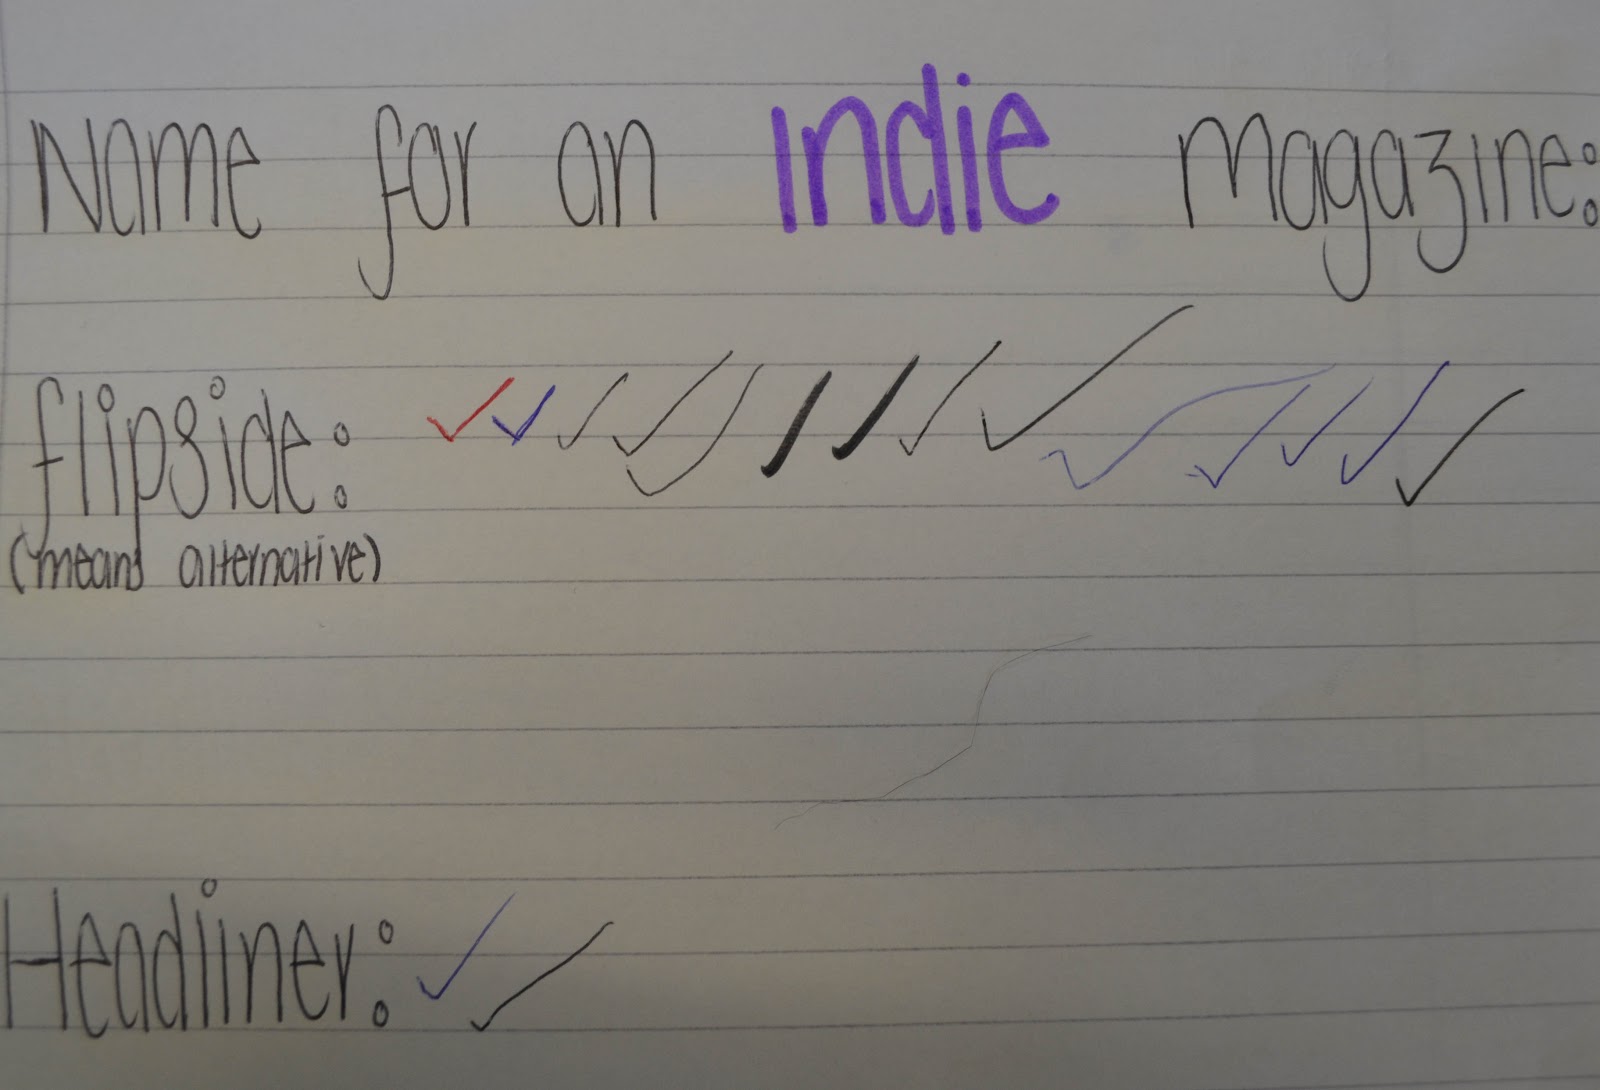 Name for an Indie magazine:
flipside:
(means alternative)
Headliner: